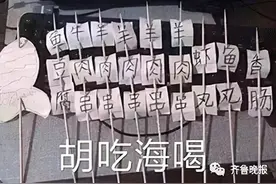 鱼豆腐
牛肉串
羊肉串
羊肉串
羊肉串
羊肉串
虾丸
鱼丸
香肠
胡吃海喝
齐鲁晚报